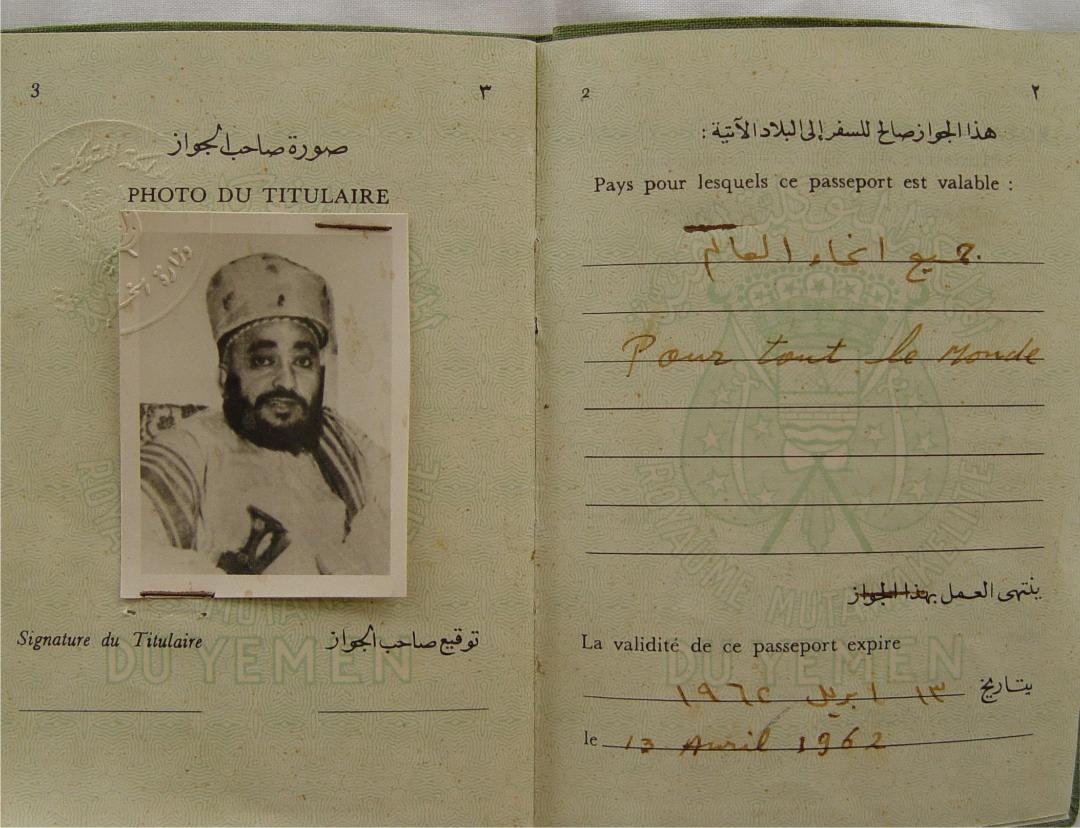 3 ٣
صورة صاحب الجواز
PHOTO DU TITULAIRE
وزارة
Signature du Titulaire توقيع صاحب الجواز
DU YEMEN
2 ٢
هذا الجواز صالح للسفر إلى البلاد الآتية :
Pays pour lesquels ce passeport est valable :
جميع انحاء العالم
Pour tout le Monde
ROYAUME MUTAWAKKELITE
DU YEMEN
ينتهى العمل بهذا الجواز
La validité de ce passeport expire
بتاريخ ١٣ ابريل ١٩٦٢
le 13 Avril 1962